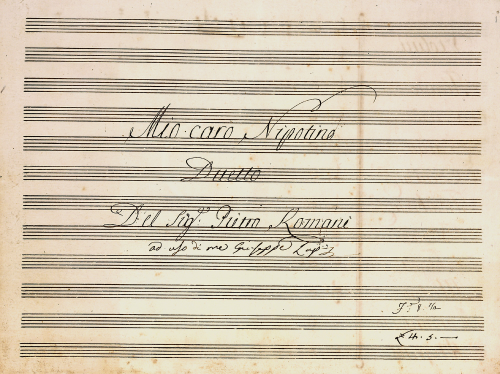 Mio caro Nipotino
Duetto
Del Sigr. Pietro Romani
ad uso di me Giuseppe